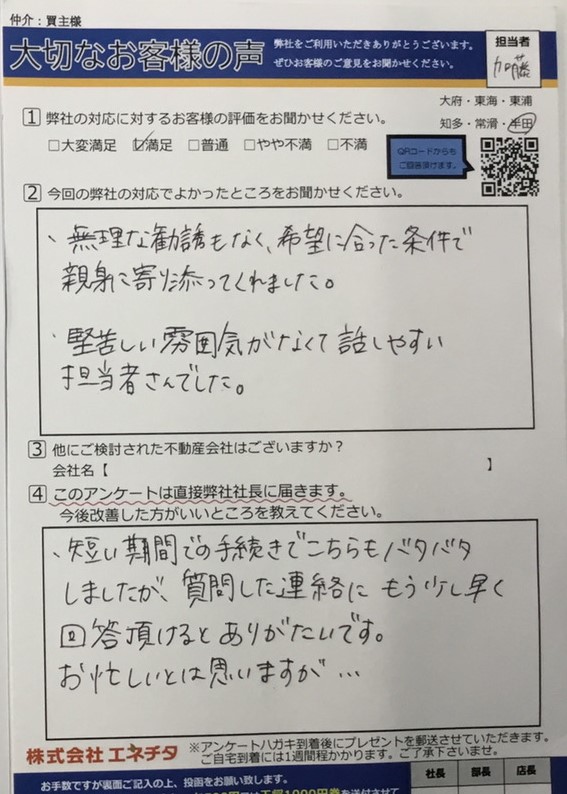 仲介:買主様
大切なお客様の声
弊社をご利用いただきありがとうございます。
ぜひお客様のご意見をお聞かせください。
担当者
加藤
大府・東海・東浦
知多・常滑・半田
1 弊社の対応に対するお客様の評価をお聞かせください。
□大変満足 ☑満足 □普通 □やや不満 □不満
QRコードからも
ご回答頂けます。
2 今回の弊社の対応でよかったところをお聞かせください。
、無理な勧誘もなく、希望に合った条件で
親身に寄り添ってくれました。
・堅苦しい雰囲気がなくて話しやすい
担当者さんでした。
3 他にご検討された不動産会社はございますか?
会社名【 】
4 このアンケートは直接弊社社長に届きます。
今後改善した方がいいところを教えてください。
、短い期間での手続きでこちらもバタバタ
しましたが、質問した連絡にもう少し早く
回答頂けるとありがたいです。
お忙しいとは思いますが…
株式会社エネチタ
※アンケートハガキ到着後にプレゼントを郵送させていただきます。
ご自宅到着には1週間程かかります。ご了承下さいませ。
お手数ですが裏面ご記入の上、投函をお願い致します。
社長 部長 店長